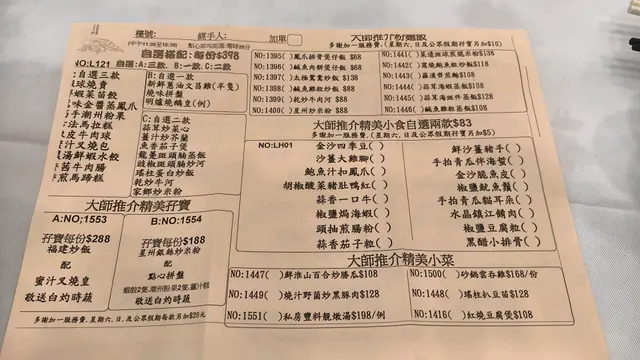 檯號: 經手人: 加單
(中午11:00至16:30)
自選搭配:每份$398
NO:L121 自選:A:三款 B:一款,C:二款
:自選三款
球燒賣
蝦菜苗餃
味金醬蒸鳳爪
手潮州粉果
法馬拉糕
皮牛肉球
汁叉燒包
湯鮮蝦水餃
牛肉腸
煎馬蹄糕
B:自選一款
新鮮蔥油文昌雞(半隻)
燒味拼盤
明爐燒鵝皇(例)
C:自選二款
蒜茸炒菜心
薑汁炒芥蘭
魚香茄子煲
豉椒斑頭腩炒河
瑤柱蛋白炒飯
乾炒牛河
家鄉炒米粉
大師推介粉麵飯
多謝加一服務費,(星期六,日及公眾假期孖寶另加$10)
NO:1395( )鳳爪排骨煲仔飯 $68
NO:1396( )鹹魚肉餅煲仔飯 $68
NO:1397( )太極鴛鴦炒飯 $138
NO:1398( )鹹魚雞粒炒飯 $88
NO:1399( )乾炒牛河 $88
NO:1400( )星州炒米 $88
NO:1442( )窩燒鮑魚粒炒飯$118
NO:1443( )羅漢齋煎麵$108
NO:1444( )蒜茸蝦蒸飯$108
NO:1445( )蒜茸海斑件蒸飯$128
NO:1446( )鹹魚雞粒蒸飯$108
大師推介精美小食自選兩款$83
多謝加一服務費.(星期六,日及公眾假期孖寶另加$5)
NO:LH01
金沙四季豆( )
沙薑大雞腳( )
鮑魚汁扣鳳爪( )
胡椒酸菜豬肚鴨紅( )
蒜香一口牛( )
椒鹽焗海蝦( )
頭抽煎腸粉( )
蒜香茄子粒( )
鮮沙薑豬手( )
手拍青瓜伴海蜇( )
金沙脆魚皮( )
椒鹽魷魚鬚( )
手拍青瓜雲耳朵( )
水晶鎮江餚肉( )
椒鹽豆腐粒( )
黑醋小排骨( )
大師推介精美孖寶
A:NO;1553
孖寶每份$288
福建炒飯
配
蜜汁叉燒皇
敬送白灼時蔬
B:NO:1554
孖寶每份$188
星州銀絲炒米
配
點心拼盤
敬送白灼時蔬
多謝加一服務費,星期六,日,及公眾假期每款另加$20元
大師推介精美小菜
NO:1447( )鮮淮山百合炒勝瓜$108
NO:1449( )燒汁野菌炒黑豚肉$128
NO:1551( )私房豐料靚燉湯$198/例
NO:1500( )砂鍋雲吞雞$168/份
NO:1448( )瑤柱扒豆苗$128
NO:1416( )紅燒豆腐煲$108